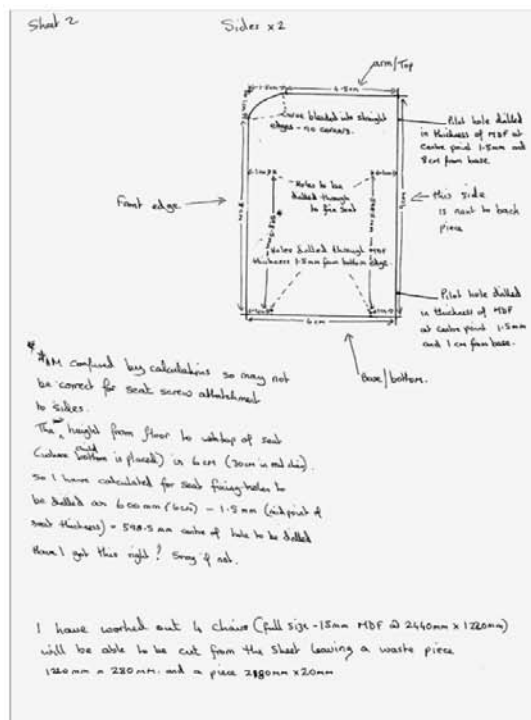 Sheet 2
Sides x 2
arm/Top
1.5cm
4.5cm
Curve blended into straight
edges - no corners.
Pilot hole drilled
in thickness of MDF at
centre point 1.5mm and
8cm from base.
Holes to be
drilled through
to fix seat
Front edge
this side
is next to back
piece
Holes drilled through MDF
thickness 1.5mm from bottom edge.
6cm
Pilot hole drilled
in thickness of MDF
at centre point 1.5mm
and 1cm from base.
Base/bottom.
* AM confused by calculations so may not
be correct for seat screw attachment
to sides.
The height from floor to top of seat
(where bottom is placed) is 6cm (30cm in real chair).
so I have calculated for seat fixing-holes to
be drilled as 600mm (6cm) - 1.5mm (midpoint of
seat thickness) = 598.5mm centre of hole to be drilled
Have I got this right? Sorry if not.
I have worked out 4 chairs (full size - 15mm MDF @ 2440mm x 1220mm)
will be able to be cut from the sheet leaving a waste piece
1220mm x 280mm. and a piece 2180mm x 20mm